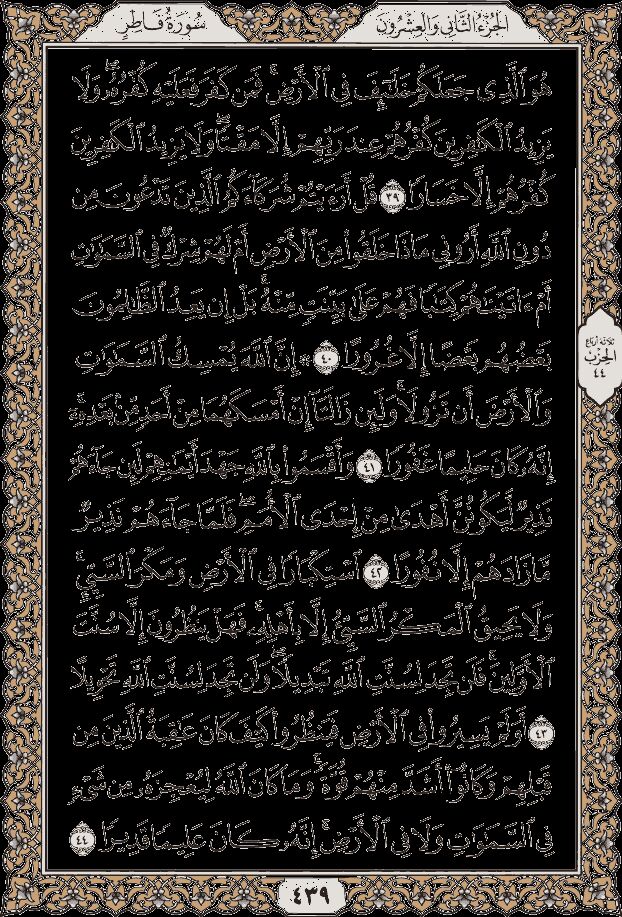 سُورَةُ فَاطِرٍ
الجُزْءُ الثَّانِي وَالعِشْرُونَ
هُوَ ٱلَّذِى جَعَلَكُمْ خَلَٰٓئِفَ فِى ٱلْأَرْضِ ۚ فَمَن كَفَرَ فَعَلَيْهِ كُفْرُهُۥ ۖ وَلَا
يَزِيدُ ٱلْكَٰفِرِينَ كُفْرُهُمْ عِندَ رَبِّهِمْ إِلَّا مَقْتًا ۖ وَلَا يَزِيدُ ٱلْكَٰفِرِينَ
كُفْرُهُمْ إِلَّا خَسَارًا ٣٩ قُلْ أَرَءَيْتُمْ شُرَكَآءَكُمُ ٱلَّذِينَ تَدْعُونَ مِن
دُونِ ٱللَّهِ أَرُونِى مَاذَا خَلَقُوا۟ مِنَ ٱلْأَرْضِ أَمْ لَهُمْ شِرْكٌ فِى ٱلسَّمَٰوَٰتِ
أَمْ ءَاتَيْنَٰهُمْ كِتَٰبًا فَهُمْ عَلَىٰ بَيِّنَتٍ مِّنْهُ ۚ بَلْ إِن يَعِدُ ٱلظَّٰلِمُونَ
بَعْضُهُم بَعْضًا إِلَّا غُرُورًا ٤٠ ۞ إِنَّ ٱللَّهَ يُمْسِكُ ٱلسَّمَٰوَٰتِ
وَٱلْأَرْضَ أَن تَزُولَا ۚ وَلَئِن زَالَتَآ إِنْ أَمْسَكَهُمَا مِنْ أَحَدٍ مِّنۢ بَعْدِهِۦٓ ۚ
إِنَّهُۥ كَانَ حَلِيمًا غَفُورًا ٤١ وَأَقْسَمُوا۟ بِٱللَّهِ جَهْدَ أَيْمَٰنِهِمْ لَئِن جَآءَهُمْ
نَذِيرٌ لَّيَكُونُنَّ أَهْدَىٰ مِنْ إِحْدَى ٱلْأُمَمِ ۖ فَلَمَّا جَآءَهُمْ نَذِيرٌ
مَّا زَادَهُمْ إِلَّا نُفُورًا ٤٢ ٱسْتِكْبَارًا فِى ٱلْأَرْضِ وَمَكْرَ ٱلسَّيِّئِ ۚ
وَلَا يَحِيقُ ٱلْمَكْرُ ٱلسَّيِّئُ إِلَّا بِأَهْلِهِۦ ۚ فَهَلْ يَنظُرُونَ إِلَّا سُنَّتَ
ٱلْأَوَّلِينَ ۚ فَلَن تَجِدَ لِسُنَّتِ ٱللَّهِ تَبْدِيلًا ۖ وَلَن تَجِدَ لِسُنَّتِ ٱللَّهِ تَحْوِيلًا
٤٣ أَوَلَمْ يَسِيرُوا۟ فِى ٱلْأَرْضِ فَيَنظُرُوا۟ كَيْفَ كَانَ عَٰقِبَةُ ٱلَّذِينَ مِن
قَبْلِهِمْ وَكَانُوٓا۟ أَشَدَّ مِنْهُمْ قُوَّةً ۚ وَمَا كَانَ ٱللَّهُ لِيُعْجِزَهُۥ مِن شَىْءٍ
فِى ٱلسَّمَٰوَٰتِ وَلَا فِى ٱلْأَرْضِ ۚ إِنَّهُۥ كَانَ عَلِيمًا قَدِيرًا ٤٤
ثلاثة أرباع
الحزب
٤٤
٤٣٩